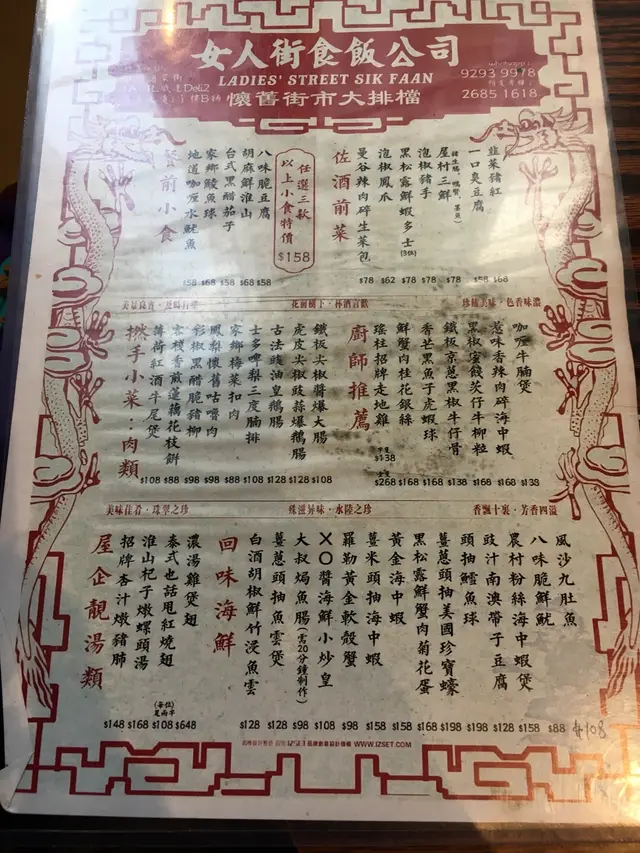 女人街食飯公司
LADIES' STREET SIK FAAN
懷舊街市大排檔
9293 9978
2685 1618
前小食
地道咖喱水魷魚
家鄉鯪魚球
台式黑醋茄子
胡麻鮮淮山
八味脆豆腐
任選三款
以上小食特價
$158
$58 $68 $58 $68 $58
佐酒前菜
曼谷辣肉碎生菜包
泡椒鳳爪
黑松露鮮蝦多士
泡椒豬手
屋村三鮮
一口臭豆腐
韭菜豬紅
$78 $62 $78 $78 $78 $58 $68
花前樹下・杯酒言歡
珍饈美味・色香味濃
撚手小菜：肉類
薄荷紅酒牛尾煲
雲棧香煎蓮藕花枝餅
彩椒黑醋脆豬柳
鳳梨懷舊咕嚕肉
家鄉梅菜扣肉
士多啤梨三度腩排
古法豉油皇鵝腸
虎皮尖椒豉蒜爆鵝腸
鐵板尖椒醬爆大腸
$108 $88 $98 $98 $88 $108 $128 $128 $108
廚師推薦
瑤柱招牌走地雞
鮮蟹肉桂花銀絲
香芒黑魚子虎蝦球
鐵板京蔥黑椒牛仔骨
黑椒蜜餞茨仔牛柳粒
惹味香辣肉碎海中蝦
咖喱牛腩煲
$138
$268 $168 $168 $138 $168 $168 $138
美味佳肴・珠翠之珍
殊滋异味・水陸之珍
香飄十裏・芳香四溢
屋企靚湯類
招牌杏汁燉豬肺
淮山杞子燉螺頭湯
泰式也話甩紅燒翅
濃湯雞煲翅
(每位)
$148 $168 $108 $648
回味海鮮
白酒胡椒鮮竹浸魚雲
薑蔥頭抽魚雲煲
大叔焗魚腸(需20分鐘制作)
XO醬海鮮小炒皇
羅勒黃金軟殼蟹
薑米頭抽海中蝦
黃金海中蝦
黑松露鮮蟹肉菊花蛋
薑蔥頭抽美國珍寶蠔
頭抽鱈魚球
豉汁南澳帶子豆腐
農村粉絲海中蝦煲
八味脆鮮魷
風沙九肚魚
$128 $128 $98 $108 $98 $158 $158 $168 $198 $198 $128 $158 $88 $108
WWW.IZSET.COM